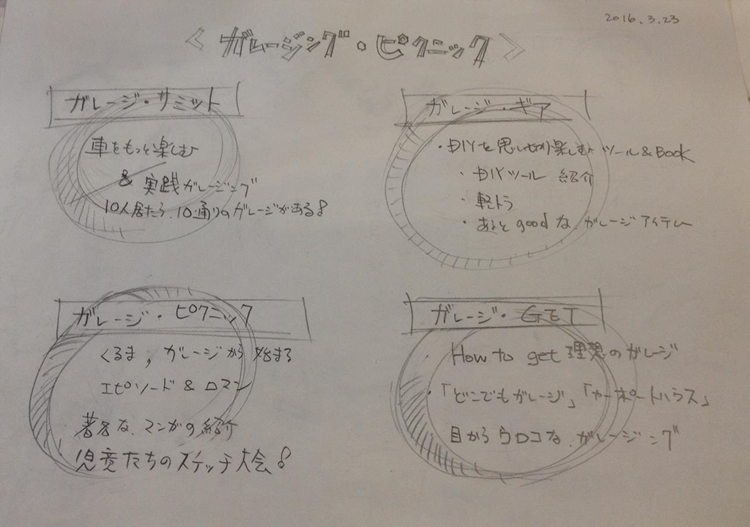 2016.3.23
〈 ガレージング・ピクニック 〉
ガレージ・サミット
車をもっと楽しむ
& 実践ガレージング
10人居たら、10通りのガレージがある!
ガレージ・ギア
・DIYを思いっきり楽しむ ツール&Book
・DIYツール 紹介
・軽トラ
・あっと goodな、ガレージアイテム
ガレージ・ピクニック
くるま、ガレージから始まる
エピソード & ロマン
著名な、マンガの紹介
児童たちのスケッチ大会!
ガレージ・GET
How to get 理想のガレージ
・「どこでもガレージ」「カーポートハウス」
目からウロコな、ガレージング